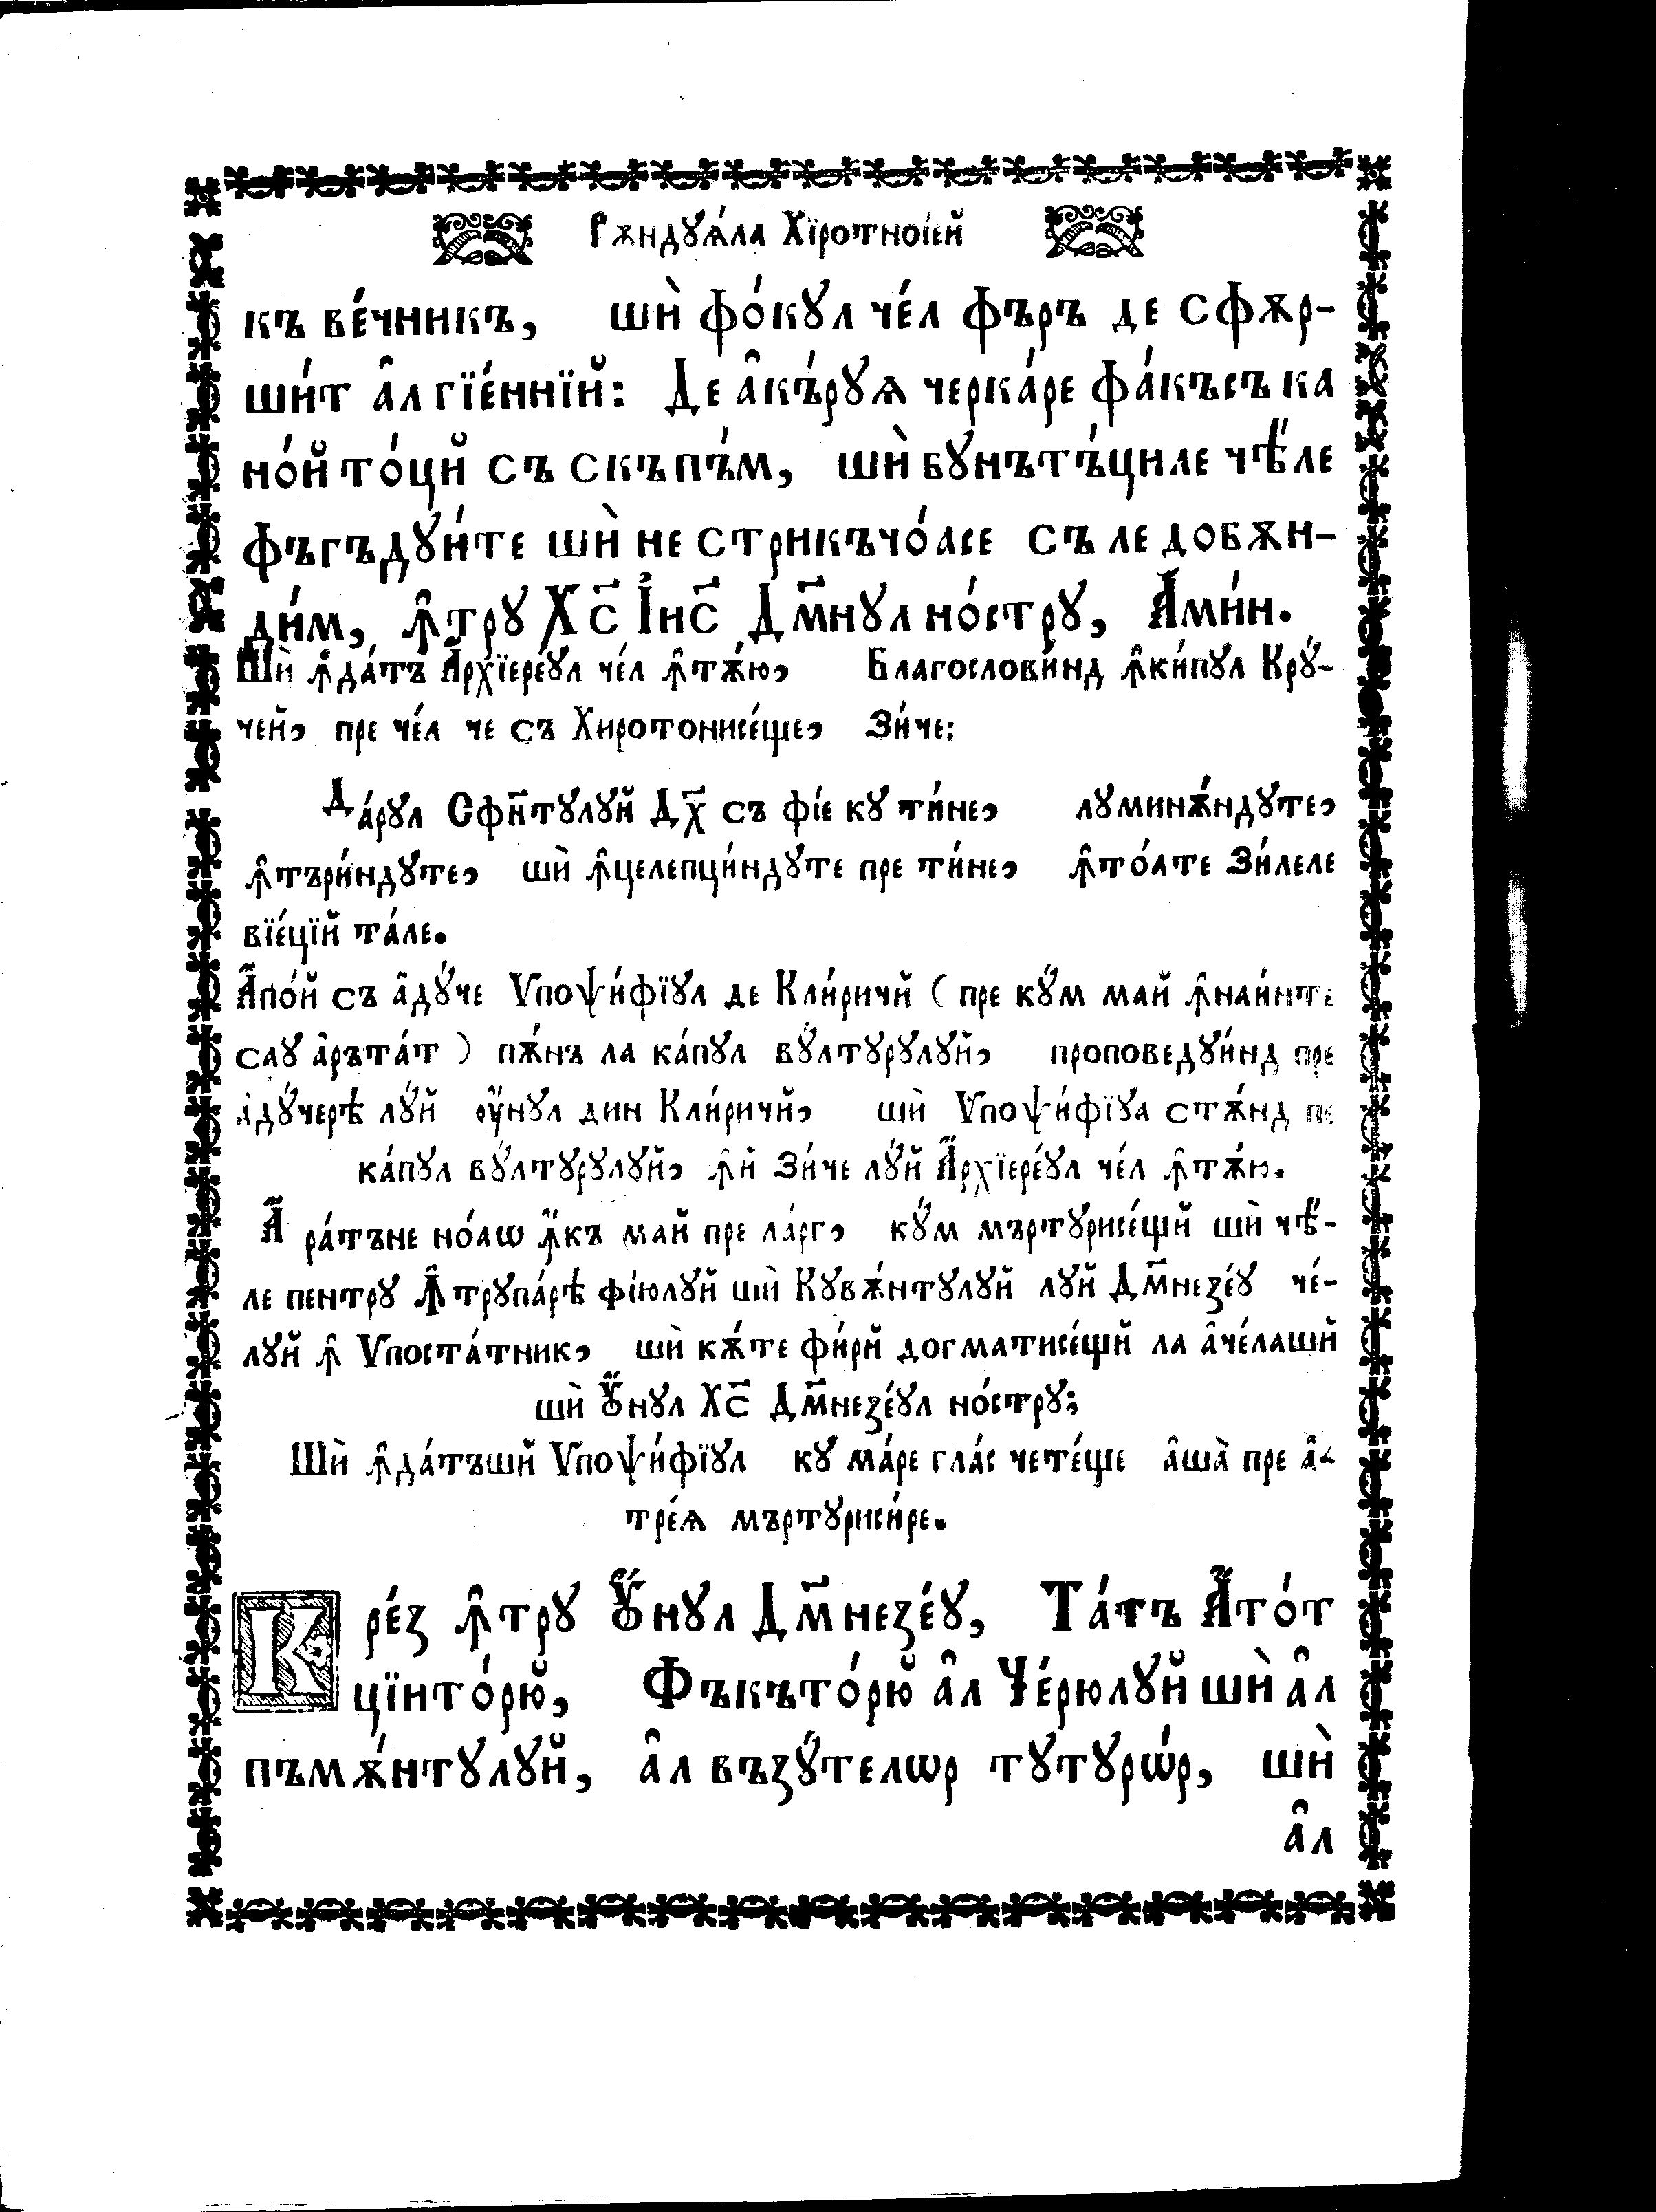 Рѫндꙋѧ́ла Хїротноі́ей
къ ве́чникъ, шѝ фо́кꙋл че́л фъръ де сфѫр-
ши́т а҆̑л гїе́ннїй: Де а҆̑къ́рꙋѧ черка́ре фа́късъ ка
но́й то́ци съ скъпъ́м, шѝ бꙋнътъ́циле чѣ́ле
фъгъдꙋи́те шѝ не стрикъчо́асе съ ле добѫн-
ди́м, ꙟ̑трꙋ Хс҃ І҆ис҃ Дм҃нꙋл но́стрꙋ, А҆ми́н.
Шѝ ꙟ̑да́тъ А҆рхїереꙋл че́л ꙟ̑тѫ́ю, Благослови́нд ꙟ̑ки́пꙋл Крꙋ́-
чей, пре че́л че съ Хиротонисе́ще, Зи́че:
Да́рꙋл Сфн҃тꙋлꙋй Дх҃ съ фі́е кꙋ ти́не, лꙋминѫ́ндꙋте,
ꙟ̑търи́ндꙋте, шѝ ꙟ̑целепци́ндꙋте пре ти́не, ꙟ̑то́ате Зи́леле
вїе́цїй та́ле.
А҆по́й съ а҆дꙋ́че Ѵпоѱи́фїꙋл де Кли́ричй ( пре кꙋ́м май ꙟ̑наи́нте
саꙋ а҆ръта́т ) пѫ́нъ ла ка́пꙋл вꙋ́лтꙋрꙋлꙋй, проповедꙋи́нд пре
а҆дꙋ́черѣ лꙋ́й ѹ҆́нꙋл дин Кли́ричй, шѝ Ѵпоѱи́фїꙋа стѫ́нд пе
ка́пꙋл вꙋ́лтꙋрꙋлꙋй, ꙟ̑й Зи́че лꙋ́й А҆рхїере́ꙋл че́л ꙟ̑тѫ́ю.
А҆ра́тъне но́аѡ ꙟ҆́къ май пре ла́рг, кꙋ́м мъртꙋрисе́щй шѝ чѣ́-
ле пентрꙋ Ꙟ̑трꙋпа́рѣ фі́юлꙋй шѝ Кꙋвѫ́нтꙋлꙋй лꙋй Дм҃незе́ꙋ че́-
лꙋй ꙟ̑ Ѵпоста́тник, шѝ кѫ́те фи́рй догматисе́щй ла а҆че́лашй
шѝ Ꙋ҆́нꙋл Хс҃ Дм҃незе́ꙋл но́стрꙋ;
Шѝ ꙟ̑да́тъшй Ѵпоѱи́фїꙋл кꙋ ма́ре гла́с чете́ще а҆ша̀ пре а҆-
тре́ѧ мъртꙋриси́ре.
Кре́з ꙟ̑трꙋ Ꙋ҆́нꙋл Дм҃незе́ꙋ, Та́тъ А҆то́т
цїито́рю̆, Фъкъто́рю̆ а҆̑л Че́рюлꙋй шѝ а҆̑л
пъмѫ́нтꙋлꙋй, а҆̑л възꙋ́телѡр тꙋтꙋрѡ́р, шѝ
а҆̑л